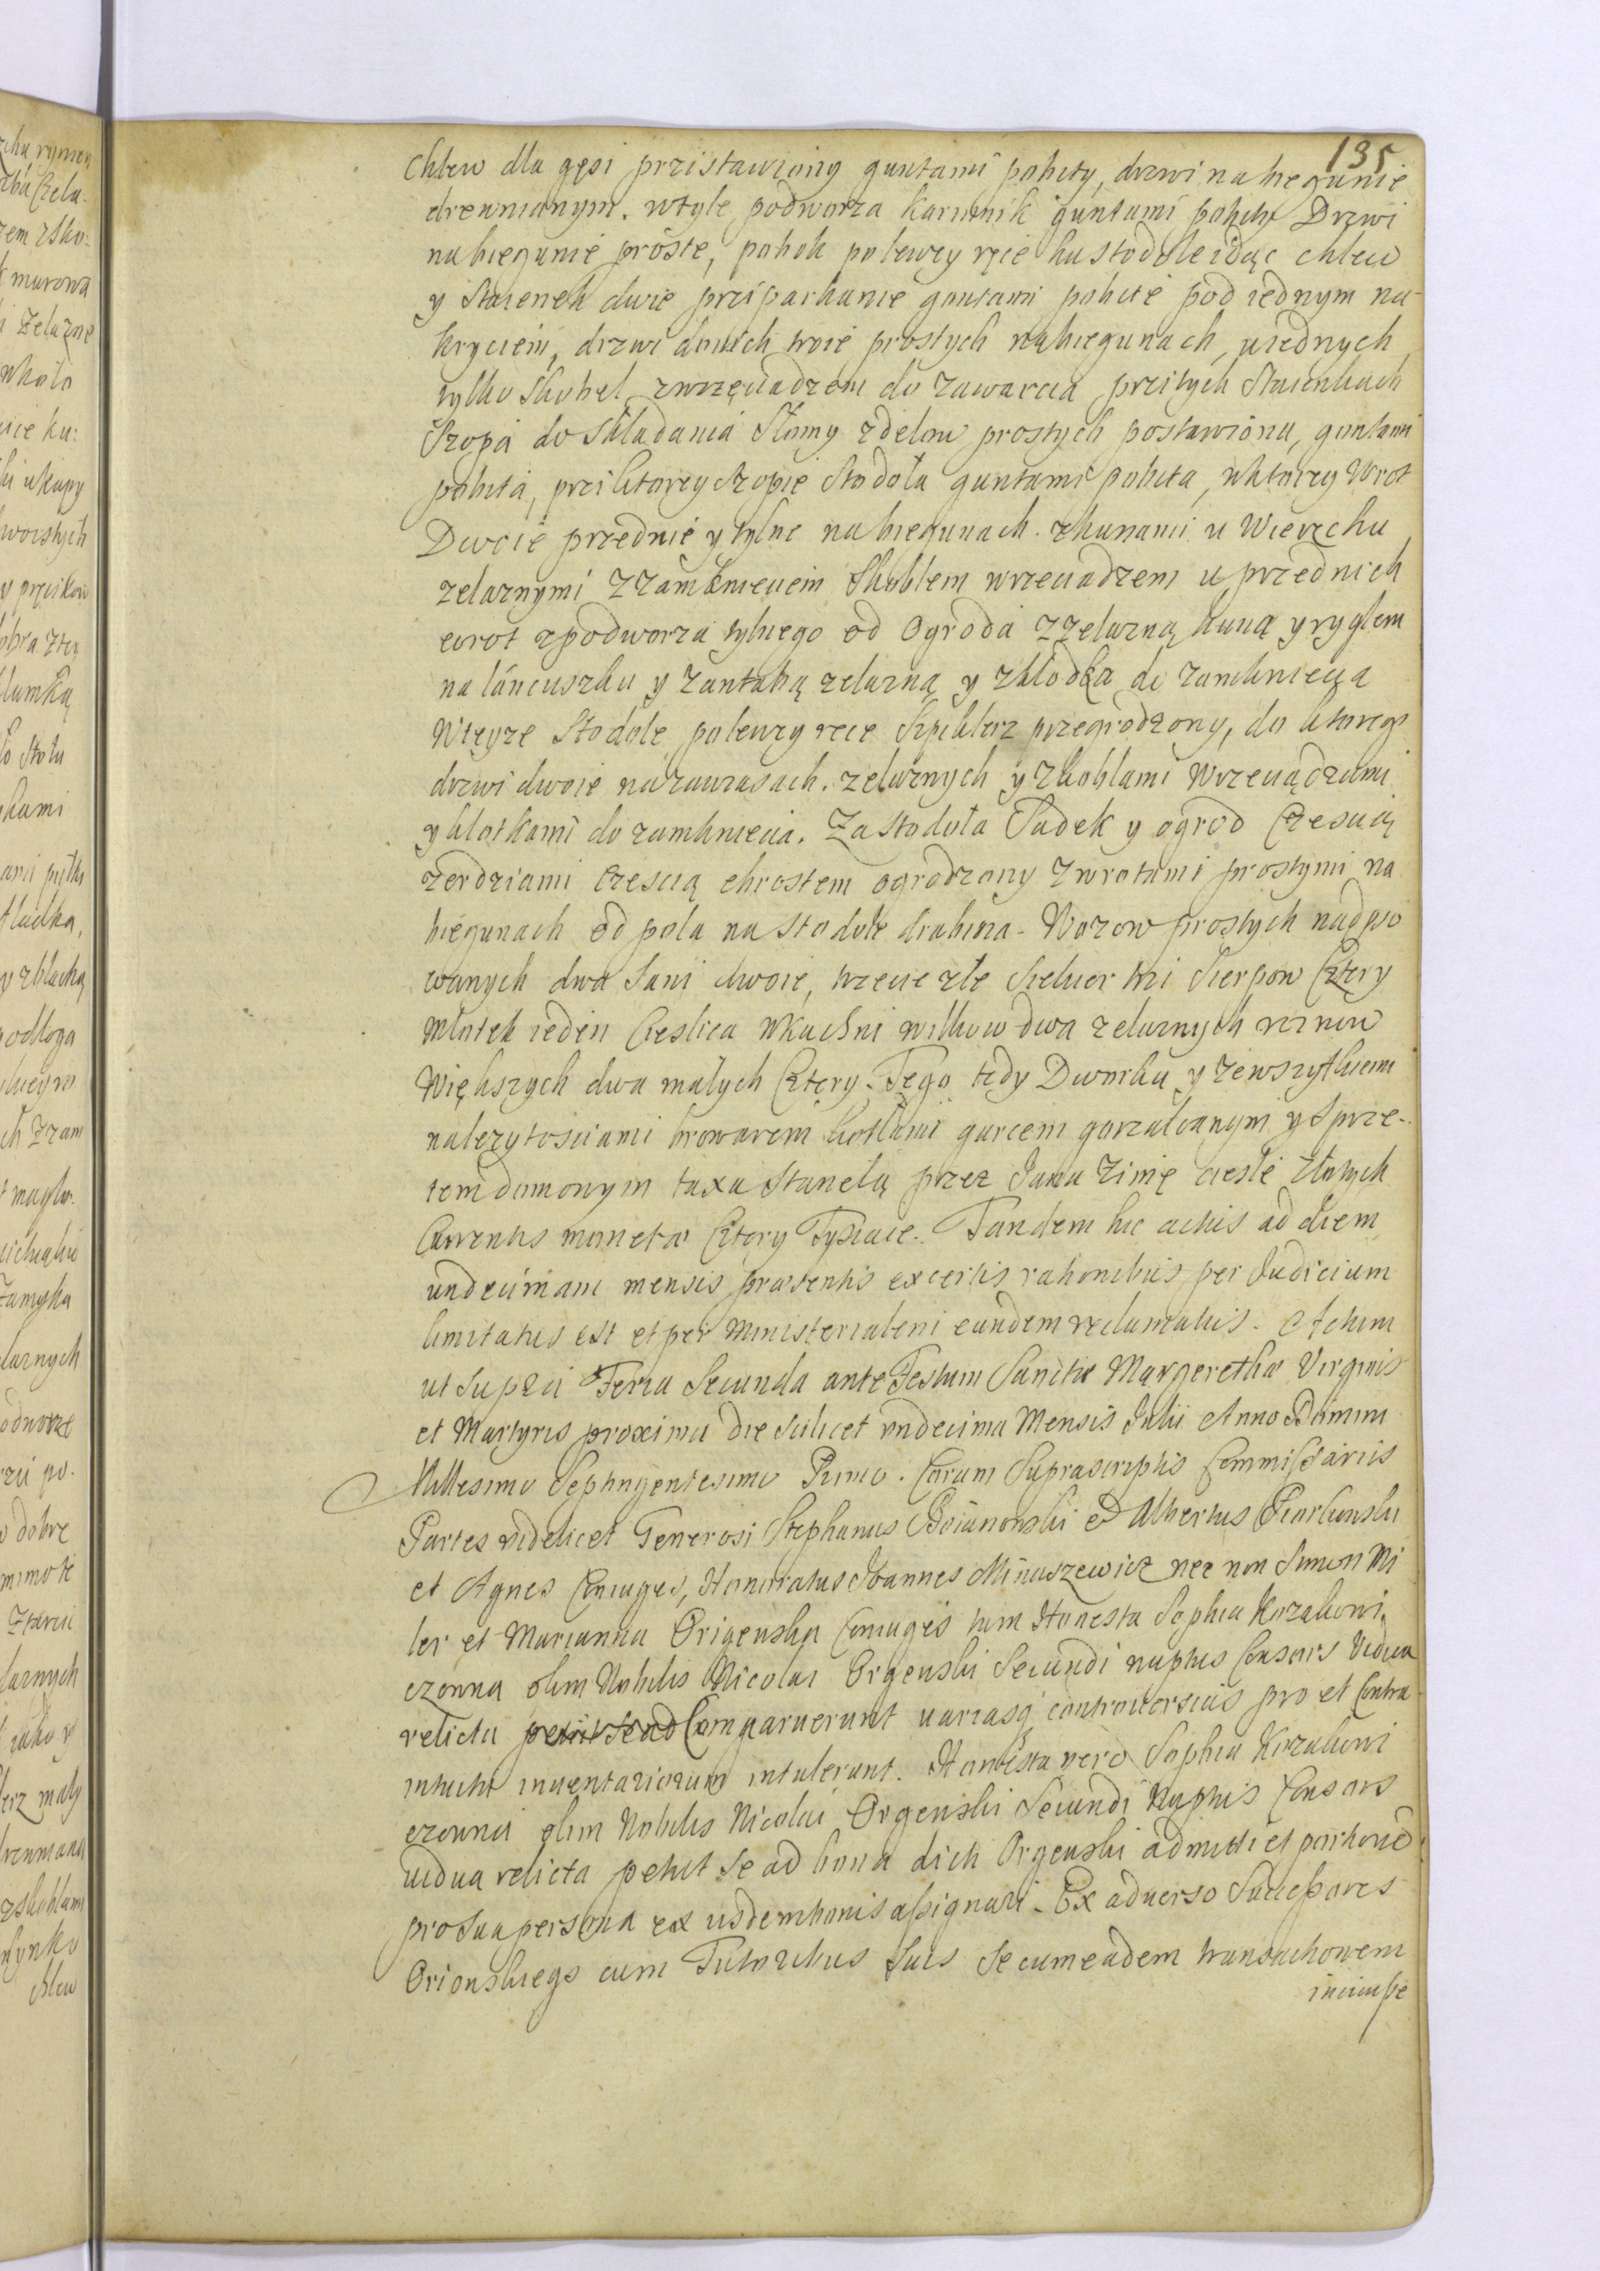 135
Chlew dla gęsi przistawiony guntami pobity, drzwi na biegunie
drewnianym. wtyle podworza karmnik guntami pobity Drzwi
na biegunie proste, pobok polewey ręce ku stodole idąc chlew
y Staienek dwie prziparkanie guntami pobite pod iednym na-
kryciem, drzwi do nich troie prostych nabiegunach, uiednych
tylko Skobel zwrzęciądzem do zawarcia przitych Staienkach
Szopa do składania Słomy zdelow prostych postawiona, guntami
pobita, prziktorey Szopie Stodoła guntami pobita, wktorey Wrot
Dwoie przednie y tylne nabiegunach. zkunami u Wierzchu
zelaznymi zzamknieciem Skoblem wrzeciadzem u przednich
wrot zpodworza tylnego od Ogroda zzelazną kuną y ryglem
na láncuszku y zantabą zelazną y zkłodką do zamkniecia
Wteyze Stodole polewey rece Szpiklerz przegrodzony, do ktorego
drzwi dwoie nazawiasach zelaznych y zkoblami Wrzeciądzami
y klotkami do zamkniecia. Za stodoła Sadek y ogrod Czescią
zerdziami Czescią chrostem ogrodzony zwrotami prostymi na
biegunach od pola na stodole drabina. Wozow prostych nadpso
wanych dwa Sani dwoie, trzecie złe Siekier tri Sierpow Cztery
Młotek ieden Cieslica Wkuchni wilkow dwa zelaznych
Większych dwa małych Cztery. Tego tedy Dworku y zewszytkiemi
nalezytosciami browarem kotłami garcem gorzalczanym y Sprze-
tem domowym taxa Stanęła przez Jana Zimę ciesle złotych
Currentis monetæ Cztery Tysiace. Tandem hic actus ad diem
undecimam mensis præsentis ex certis rationibus per Judicium
limitatus est et per Ministerialem eundem reclamatus. Actum
ut Supra Feria Secunda ante Festum Sanctæ Margerethæ Virginis
et Martyris proxima die scilicet undecima Mensis Julii Anno Domini
Millesimo Septingentesimo Primo. Coram Suprascriptis Commissariis
Partes videlicet Generosi Stephanus Boianowski et Albertus
et Agnes Coniuges, Honoratus Joannes Minuszewicz nec non Simon Mi
ler et Marianna Origenska Coniuges tum Honesta Sophia Kozakowi
czowna olim Nobilis Nicolai Orgenski Secundi nuptus Consors Vidua
relicta Comparuerunt variasq controversias pro et Contra
intuitu inventariorum intulerunt. Honesta vero Sophia Kozakowi
czowna olim Nobilis Nicolai Orgenski Secundi Nuptus Consors
vidua relicta petiit se ad bona dicti Orgenski admitti et portione
pro sua persona ex iisdem bonis assignari. Ex adverso Successores
Orionskiego cum Tutoribus Suis Secum eadem transactionem
iniuisse